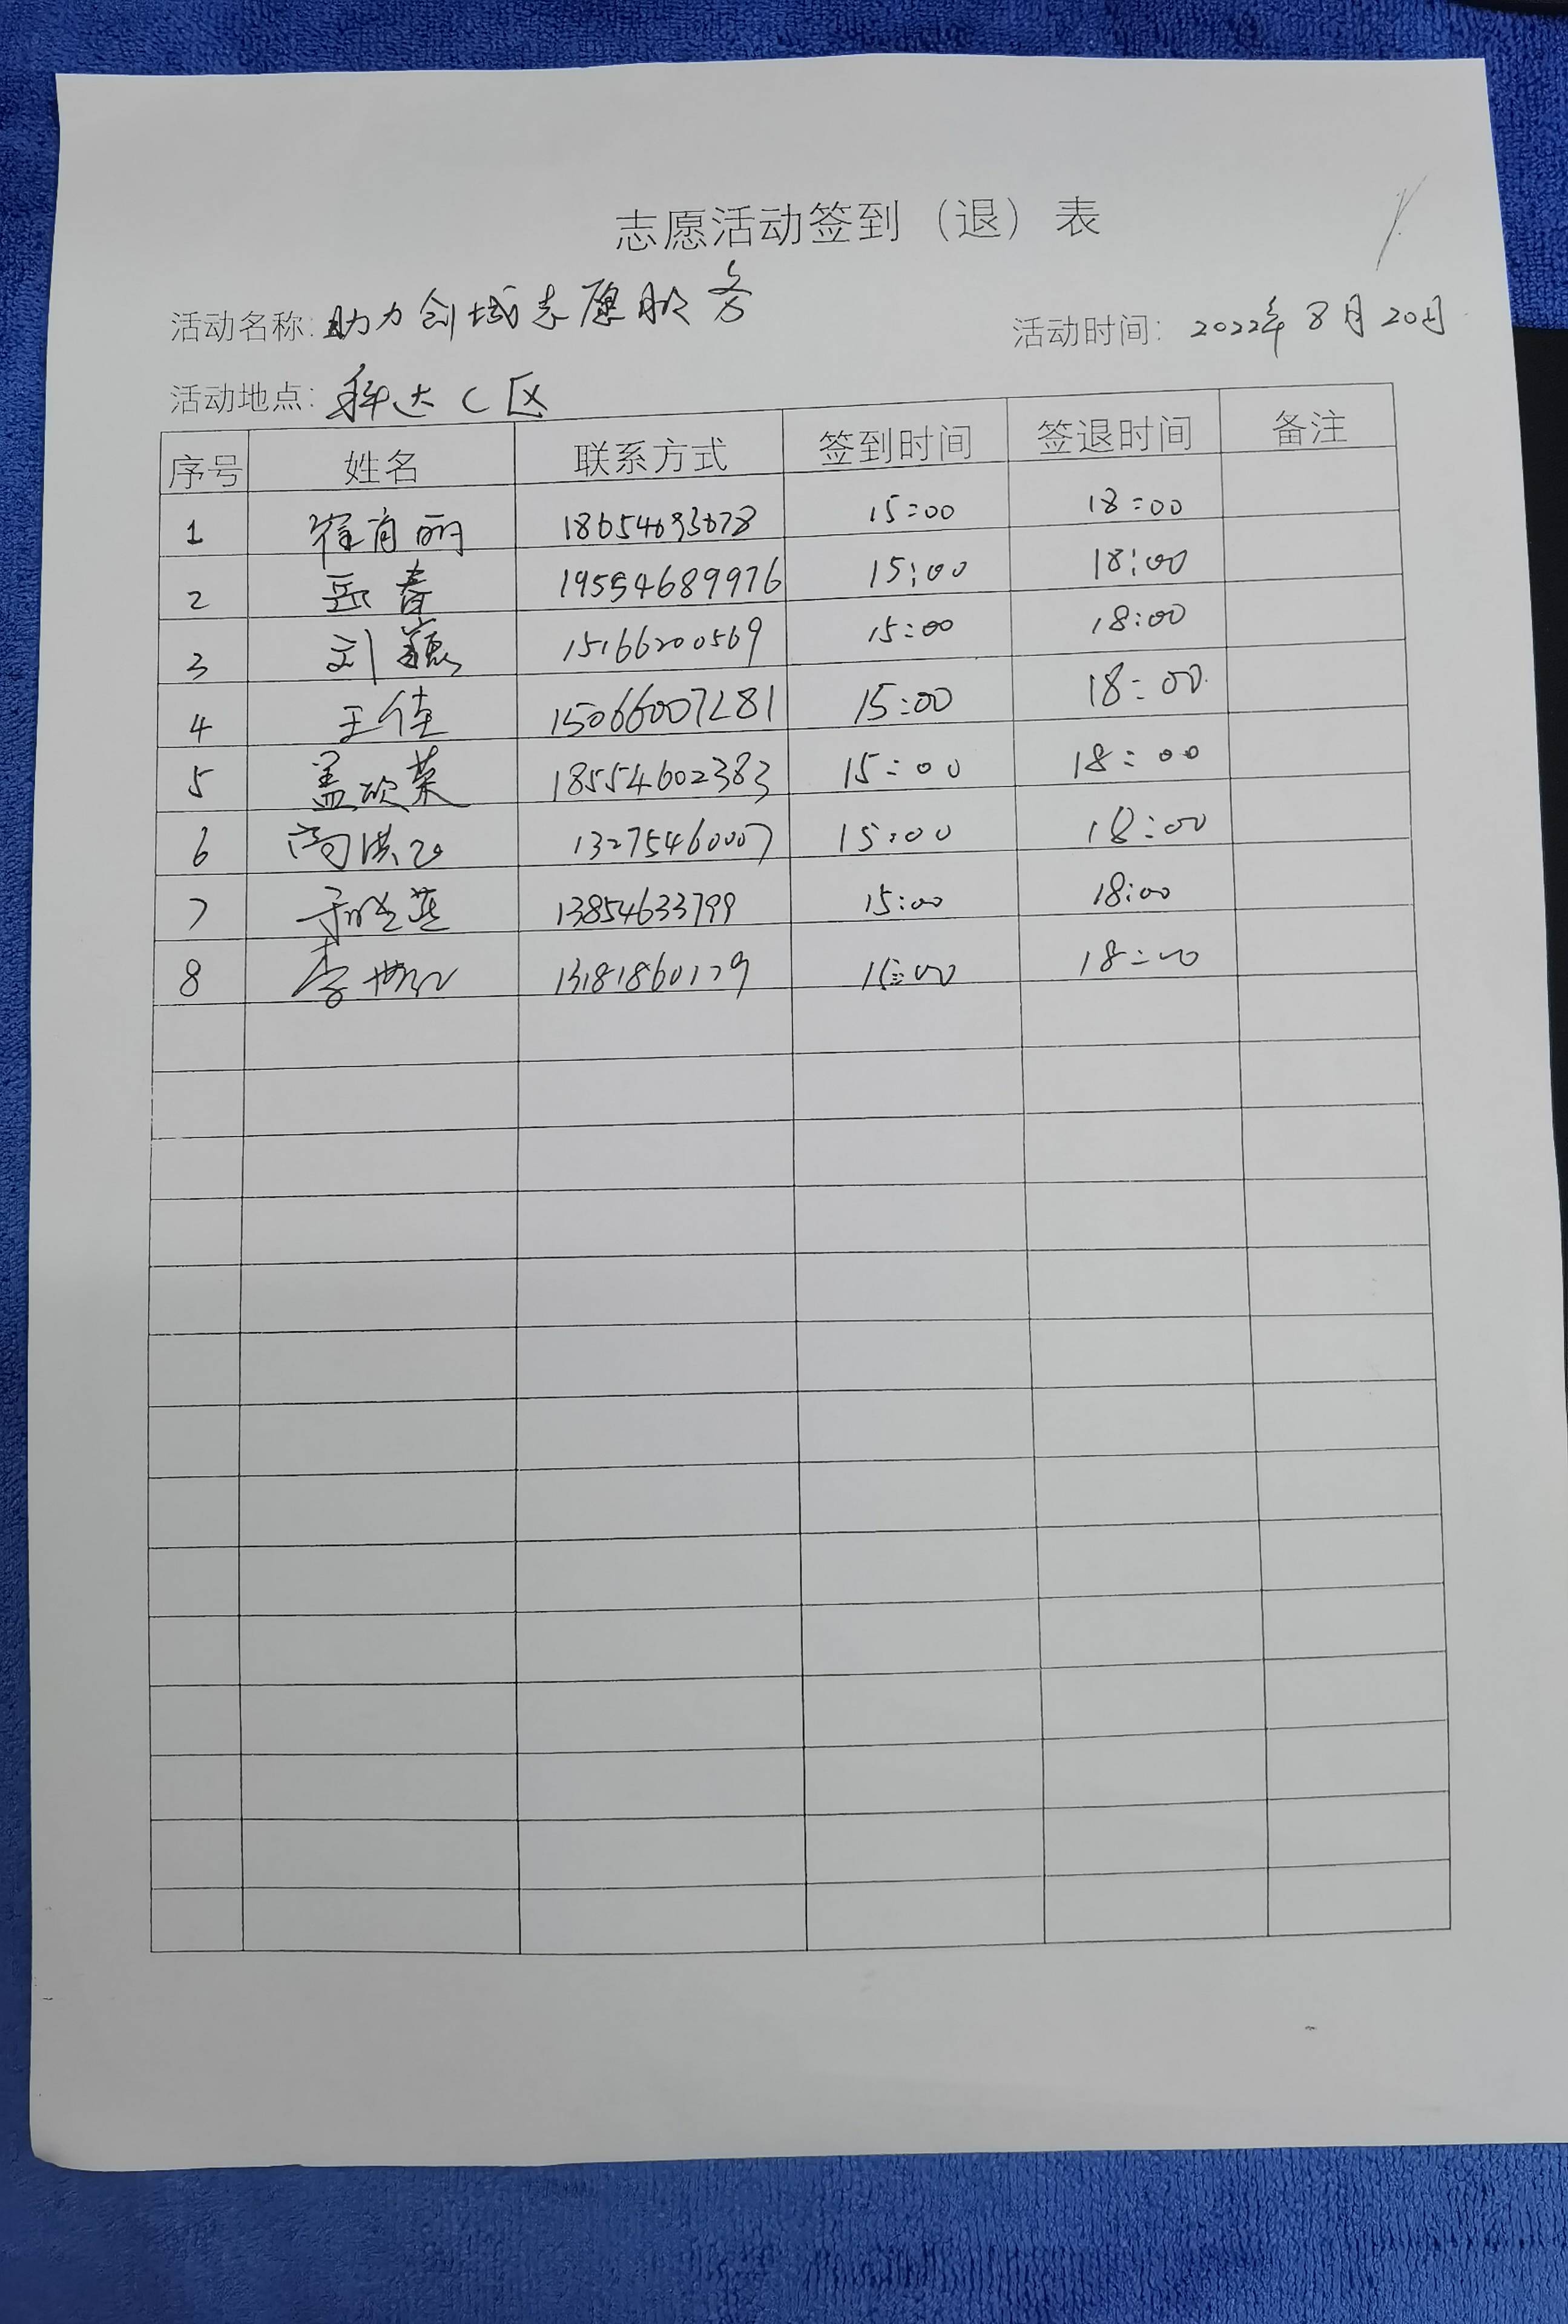 志愿活动签到（退）表
活动名称: 助力创城志愿服务 活动时间: 2022年8月20日
活动地点: 科达C区
序号 姓名 联系方式 签到时间 签退时间 备注
1 18654693678 15:00 18:00
2 岳春 19554689976 15:00 18:00
3 刘巍 15166200569 15:00 18:00
4 王佳 15066007281 15:00 18:00
5 盖欣荣 18554602383 15:00 18:00
6 13275460007 15:00 18:00
7 于晓燕 13854633799 15:00 18:00
8 15:00 18:00